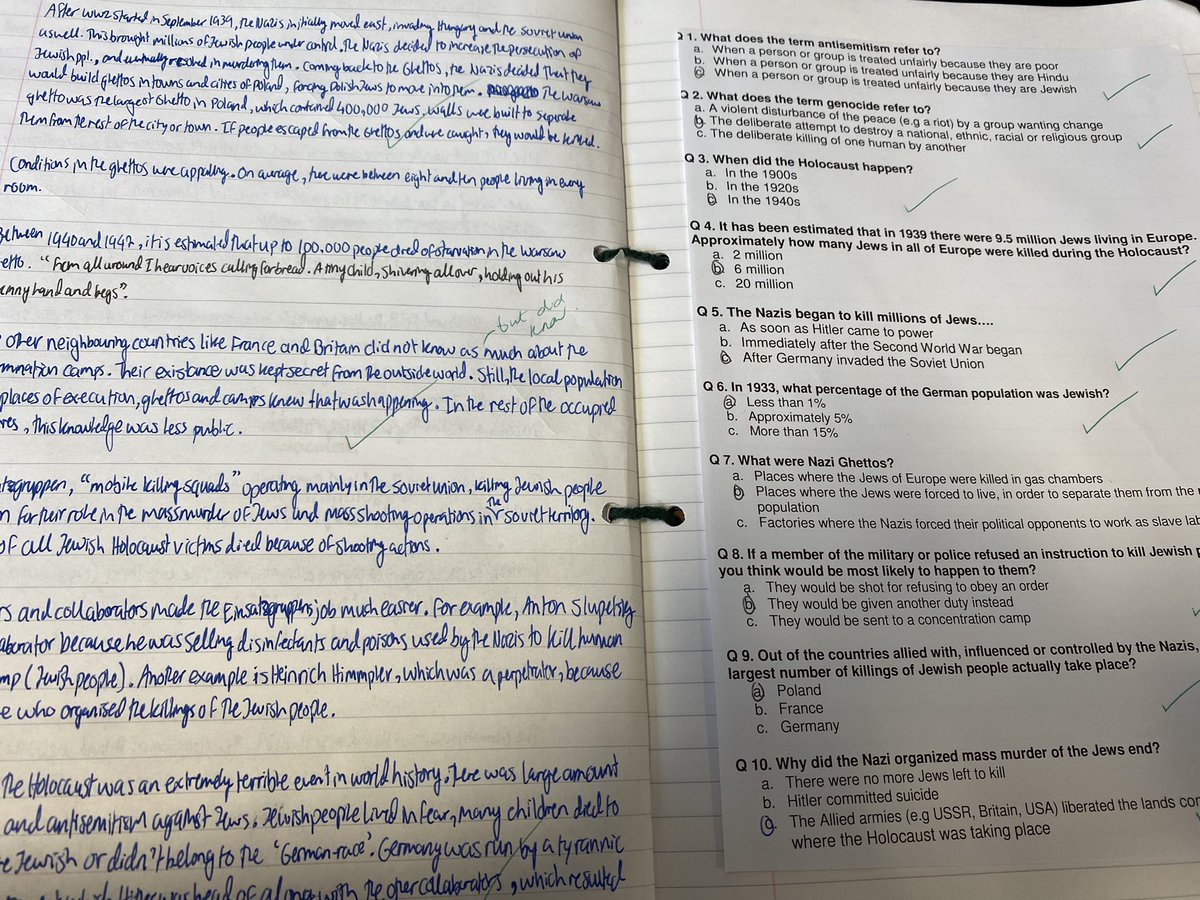 After WW2 started in September 1939, the Nazis initially moved east, invading Hungary and the soviet union
aswell. This brought millions of Jewish people under control. The Nazis decided to increase the persecution of
Jewish ppl., and eventually resulted in murdering them. Coming back to the Ghettos, the Nazis decided that they
would build ghettos in towns and cities of Poland, forcing Polish Jews to move into them. The Warsaw
ghetto was the largest Ghetto in Poland, which contained 400,000 Jews, walls were built to separate
them from the rest of the city or town. If people escaped from the Ghettos and were caught, they would be killed.
Conditions in the ghettos were appalling. On average, there were between eight and ten people living in every
room.
Between 1940 and 1942, it is estimated that up to 100.000 people died of starvation in the Warsaw
etto. "From all around I hear voices calling for bread. A tiny child, shivering all over, holding out his
hand and begs".
but did
know.
other neighbouring countries like France and Britain did not know as much about the
mination camps. Their existance was kept secret from the outside world. Still, the local population
places of execution, ghettos and camps knew that was happening. In the rest of the occupied
res, this knowledge was less public.
tzgruppen, "mobile killing squads" operating mainly in the soviet union, killing Jewish people
n for their role in the mass murder of Jews and mass shooting operations in the soviet territory.
of all Jewish Holocaust victims died because of shooting actions.
rs and collaborators made the Einsatzgruppens job much easier. For example, Anton Slupetsky
aborator because he was selling disinfectants and poisons used by the Nazis to kill human
mp (Jewish people). Another example is Heinrich Himmpler, which was a perpetrator, because
e who organised the killings of the Jewish people.
The Holocaust was an extremely terrible event in world history. There was large amount
and antisemitism against Jews. Jewish people lived in fear, many children died to
e Jewish or didn't belong to the 'German-race'. Germany was run by a tyrannic
head of along with the other collaborators, which resulted
Q 1. What does the term antisemitism refer to?
a. When a person or group is treated unfairly because they are poor
b. When a person or group is treated unfairly because they are Hindu
c. When a person or group is treated unfairly because they are Jewish
Q 2. What does the term genocide refer to?
a. A violent disturbance of the peace (e.g a riot) by a group wanting change
b. The deliberate attempt to destroy a national, ethnic, racial or religious group
c. The deliberate killing of one human by another
Q 3. When did the Holocaust happen?
a. In the 1900s
b. In the 1920s
c. In the 1940s
Q 4. It has been estimated that in 1939 there were 9.5 million Jews living in Europe.
Approximately how many Jews in all of Europe were killed during the Holocaust?
a. 2 million
b. 6 million
c. 20 million
Q 5. The Nazis began to kill millions of Jews....
a. As soon as Hitler came to power
b. Immediately after the Second World War began
c. After Germany invaded the Soviet Union
Q 6. In 1933, what percentage of the German population was Jewish?
a. Less than 1%
b. Approximately 5%
c. More than 15%
Q 7. What were Nazi Ghettos?
a. Places where the Jews of Europe were killed in gas chambers
b. Places where the Jews were forced to live, in order to separate them from the
population
c. Factories where the Nazis forced their political opponents to work as slave lab
Q 8. If a member of the military or police refused an instruction to kill Jewish p
you think would be most likely to happen to them?
a. They would be shot for refusing to obey an order
b. They would be given another duty instead
c. They would be sent to a concentration camp
Q 9. Out of the countries allied with, influenced or controlled by the Nazis,
largest number of killings of Jewish people actually take place?
a. Poland
b. France
c. Germany
Q 10. Why did the Nazi organized mass murder of the Jews end?
a. There were no more Jews left to kill
b. Hitler committed suicide
c. The Allied armies (e.g USSR, Britain, USA) liberated the lands con
where the Holocaust was taking place